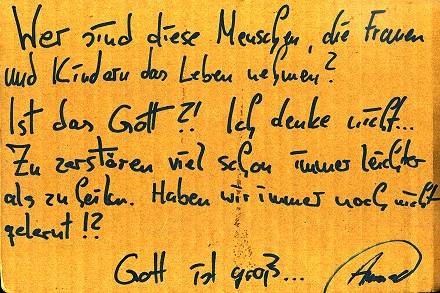 Wer sind diese Menschen, die Frauen
und Kindern das Leben nehmen?
Ist das Gott?! Ich denke nicht...
Zu zerstören viel schon immer leichter
als zu heilen. Haben wir immer noch nicht
gelernt!?
Gott ist groß...